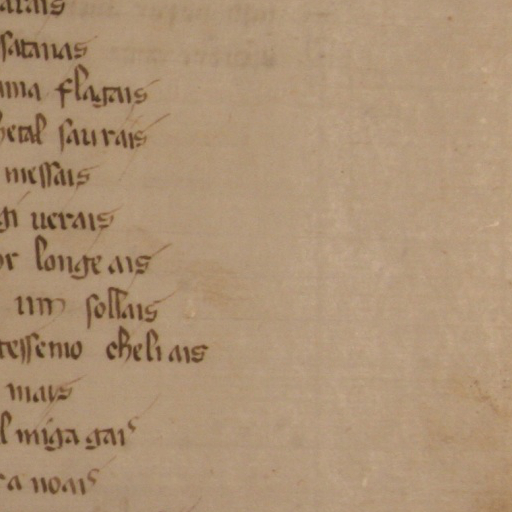 arais
satanas
ama flagais
hetal saurais
messais
gi uerais
or longe ais
un sollais
tessemo cheli ais
mais
l miga gais
ra noais